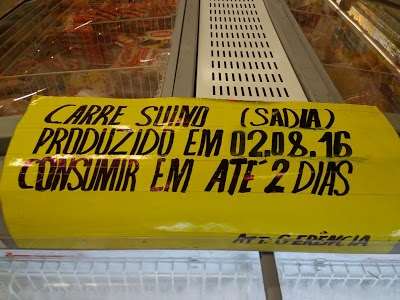 CARRE SUINO (SADIA)
PRODUZIDO EM 02.08.16
CONSUMIR EM ATÉ 2 DIAS
ATT. GERÊNCIA